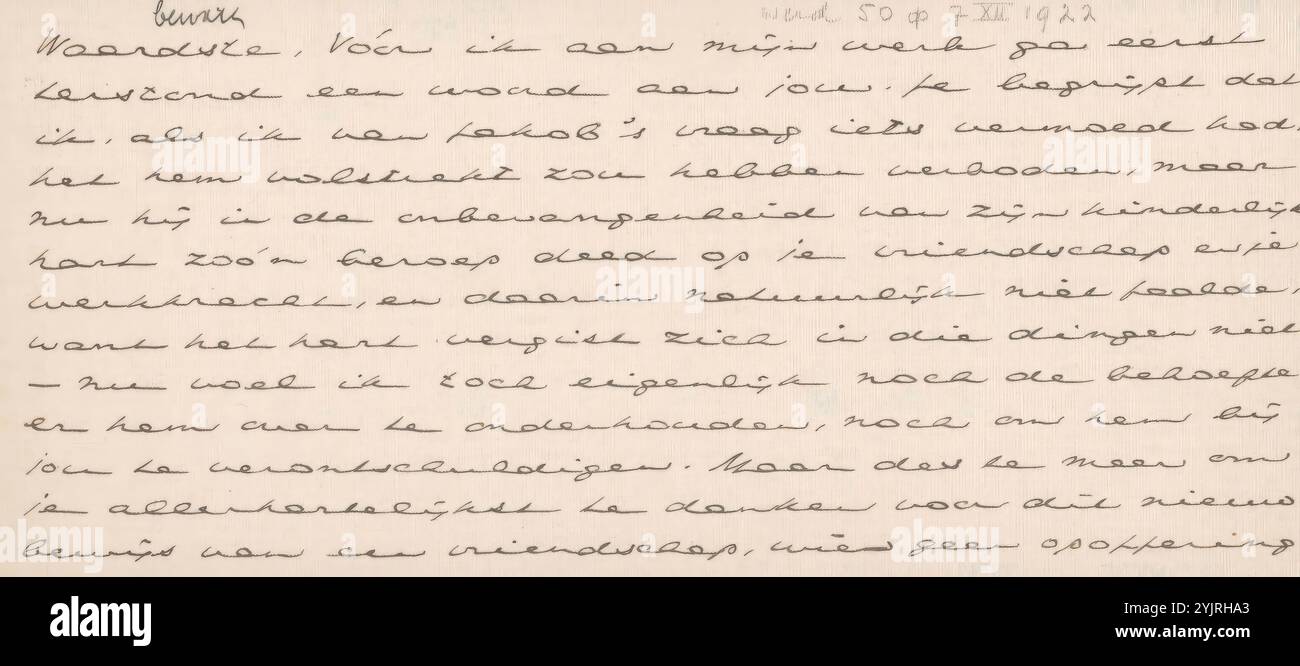 bewaren
50 φ 7 XII 1922
Waardste, Vóór ik aan mijn werk ga eerst
terstond een woord aan jou. Je begrijpt dat
ik, als ik van Jakob's vraag iets vermoed had,
het hem volstrekt zou hebben verboden, maar
nu hij in de onbevangenheid van zijn kinderlijk
hart zoó'n beroep deed op je vriendschap en je
werkkracht, en daarin natuurlijk niet faalde,
want het hart vergist zich in die dingen niet
— nu voel ik toch eigenlijk noch de behoefte
er hem over te onderhouden, noch om hem bij
jou te verontschuldigen. Maar des te meer om
je allerhartelijkst te danken voor dit nieuw
bewijs van een vriendschap, wien geen opoffering
alamy
Image ID: 2YJRHA3
www.alamy.com